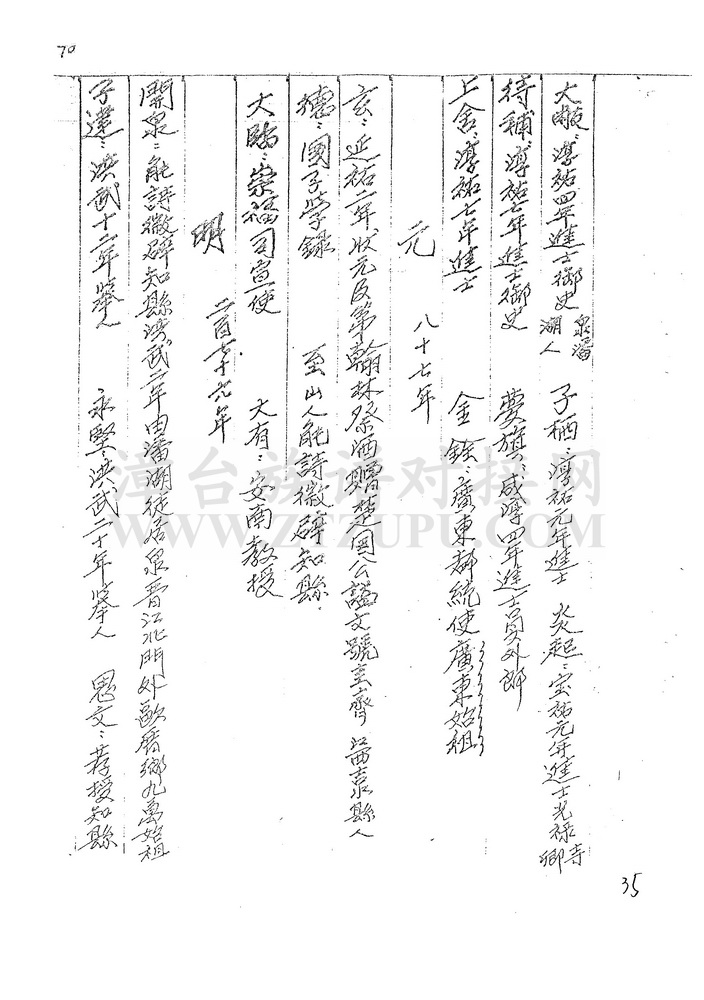 70
大 : 淳祐四年進士御史 泉潘湖人 子栖 : 淳祐元年進士 炎起 : 宝祐元年進士光祿寺卿
待補 : 淳祐七年進士御史 夢旗 : 咸淳四年進士員外郎
上舍 : 淳祐七年進士 金鉉 : 廣東都統使廣東始祖
元 八十七年
玄 : 延祐二年狀元及第翰林祭酒贈楚国公謚文號圭齊 江西 縣人
德 : 國子学錄 至山人能詩徵辟知縣
大 : 崇福司宣使 大有 : 安南教授
明 二百七十六年
開泉 : 能詩徵辟知縣洪武二年由潘湖徒居泉晋江北門外歐厝鄉九萬始祖
子達 : 洪武十二年举人 永堅 : 洪武二十年举人 思文 : 荐授知縣
35
漳台族谱对接网
WWW.ZTZUPU.COM